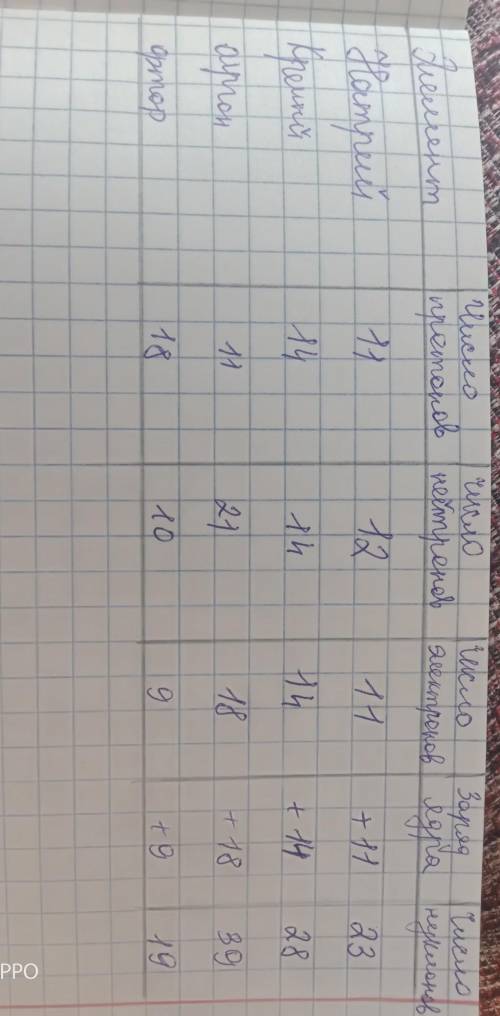 Элемент Число протонов Число нейтронов Число электронов Заряд ядра Число нуклонов
Натрий 11 12 11 +11 23
Кремний 14 14 14 +14 28
аргон 11 21 18 +18 39
фтор 18 10 9 +9 19
PPO